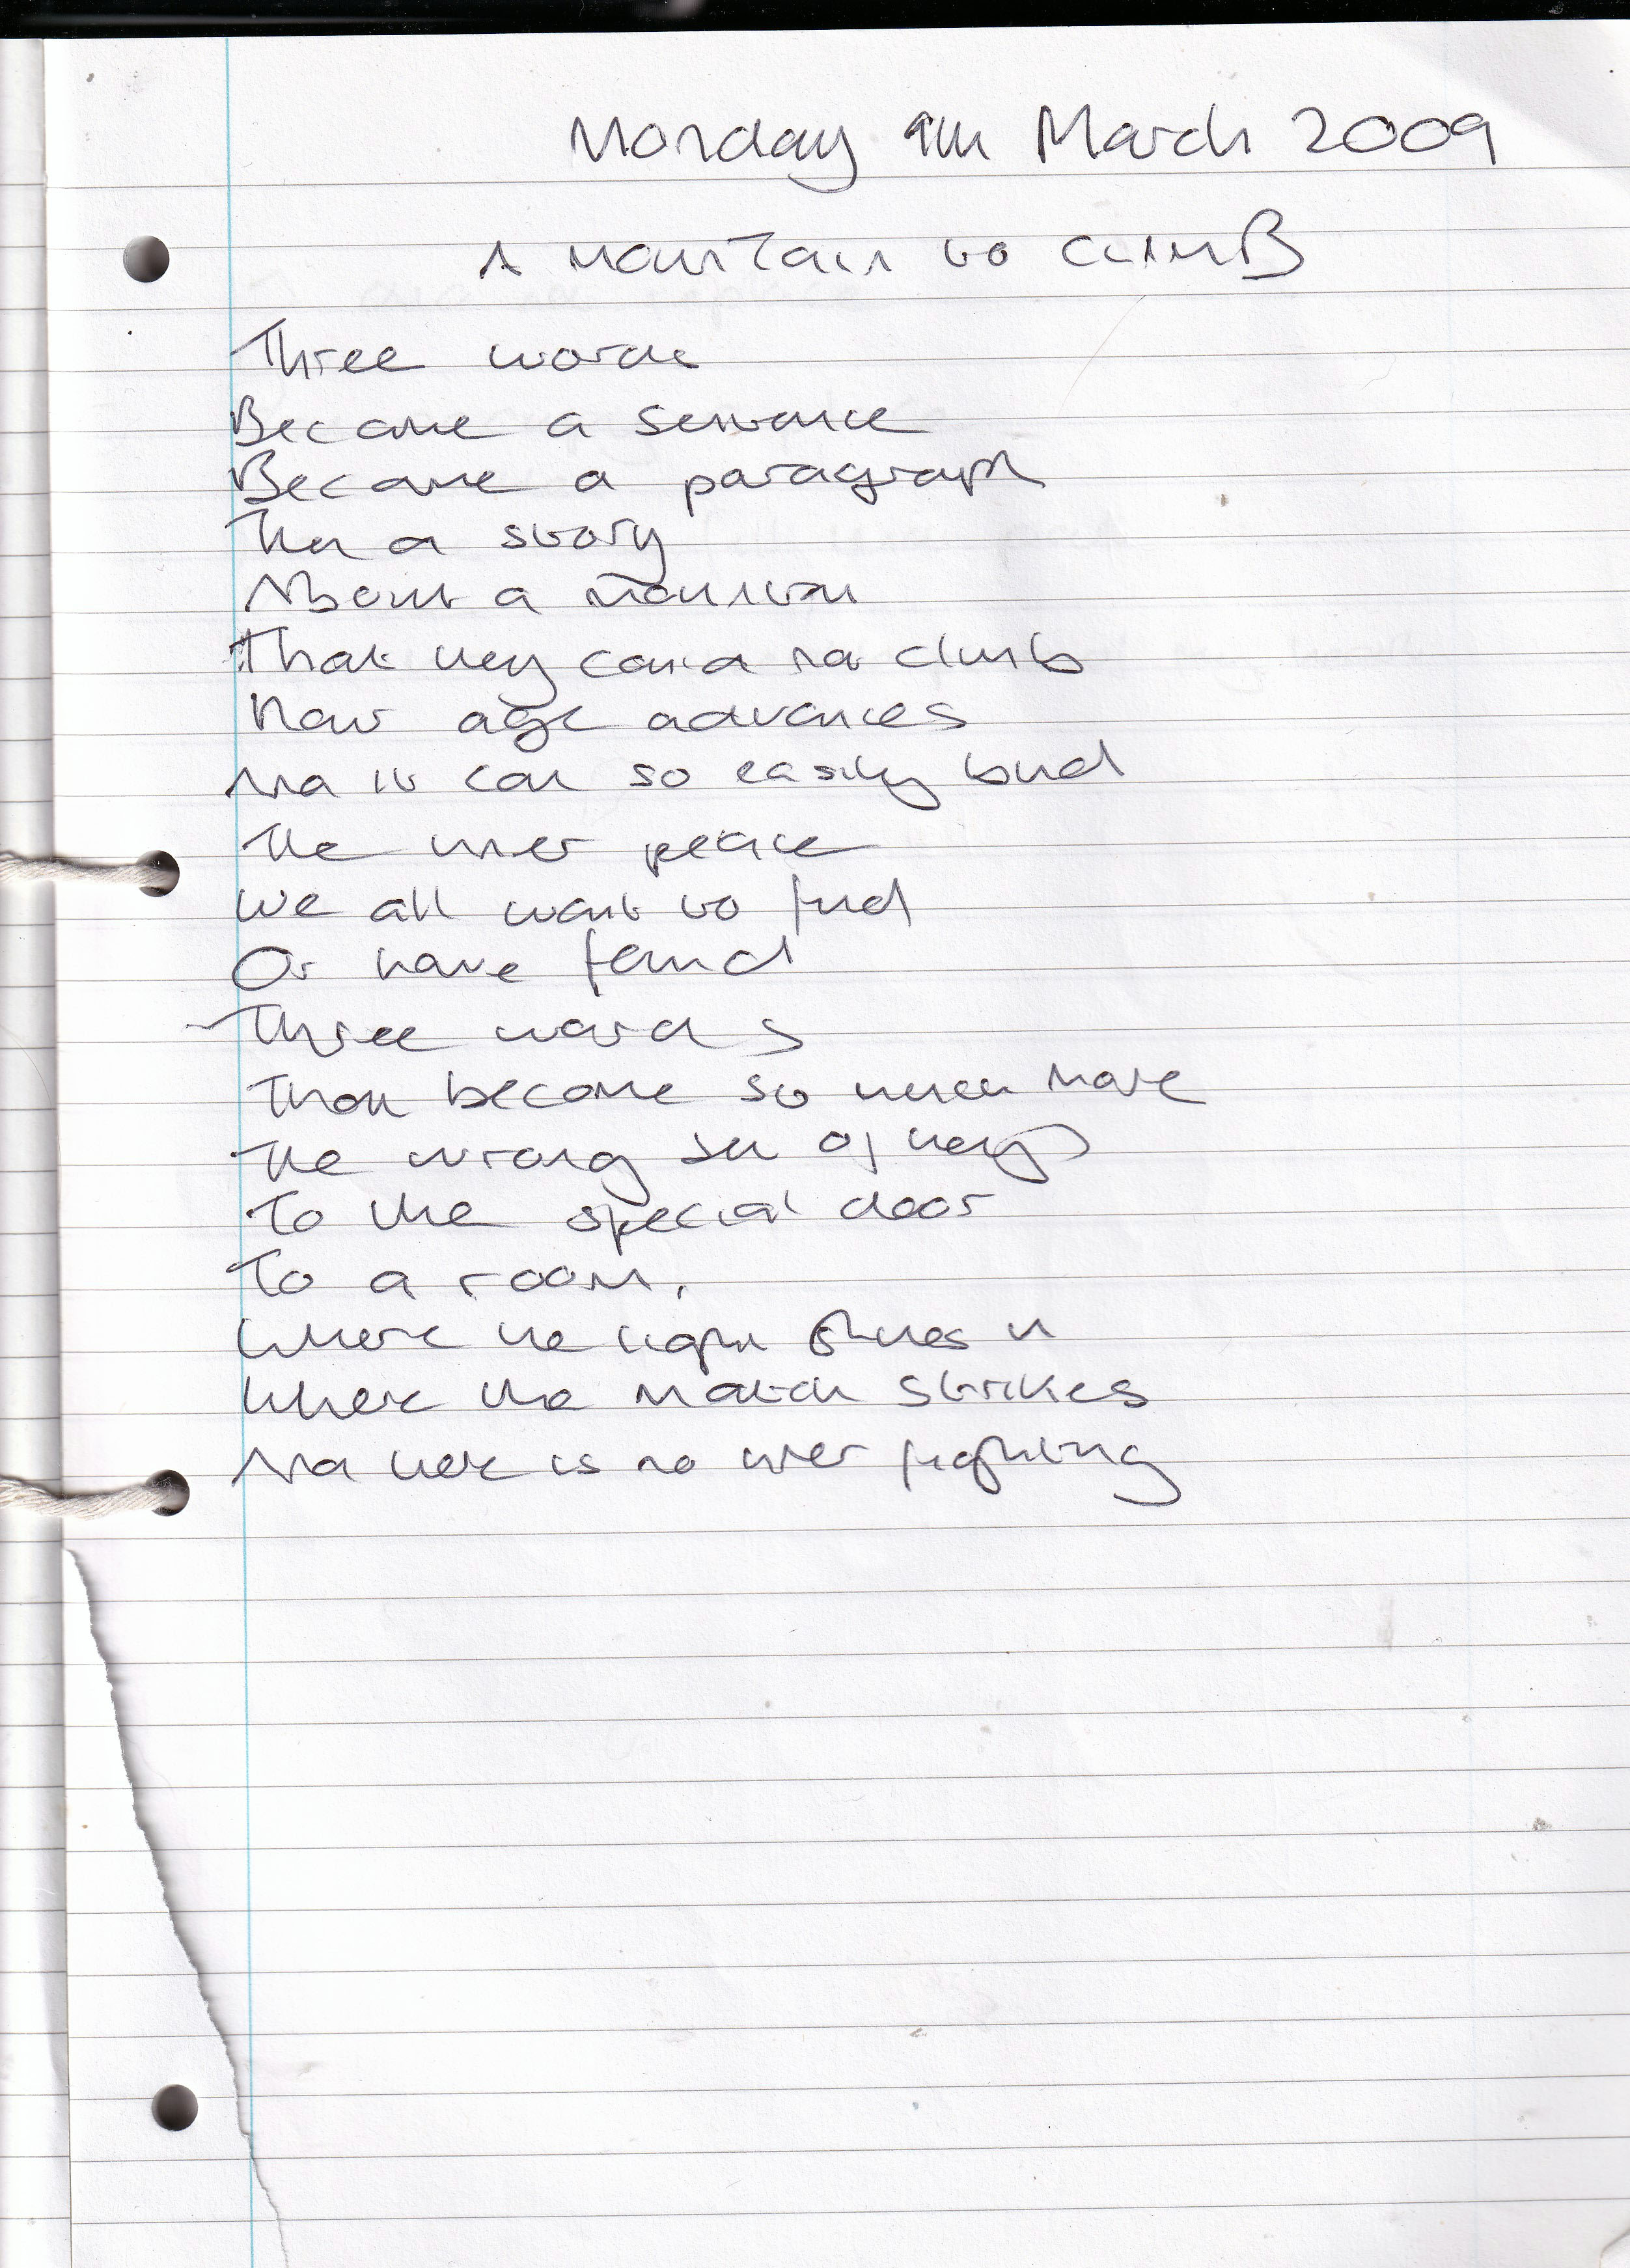 Monday 9th March 2009
A Mountain to Climb
Three words
Became a sentence
Became a paragraph
Then a story
About a mountain
That they could not climb
How age advances
And it can so easily bind
The inner peace
We all want to find
Or have found
Three words
That become so much more
The wrong set of keys
To the special door
To a room,
Where the light shines in
Where the match strikes
And there is no inner fighting